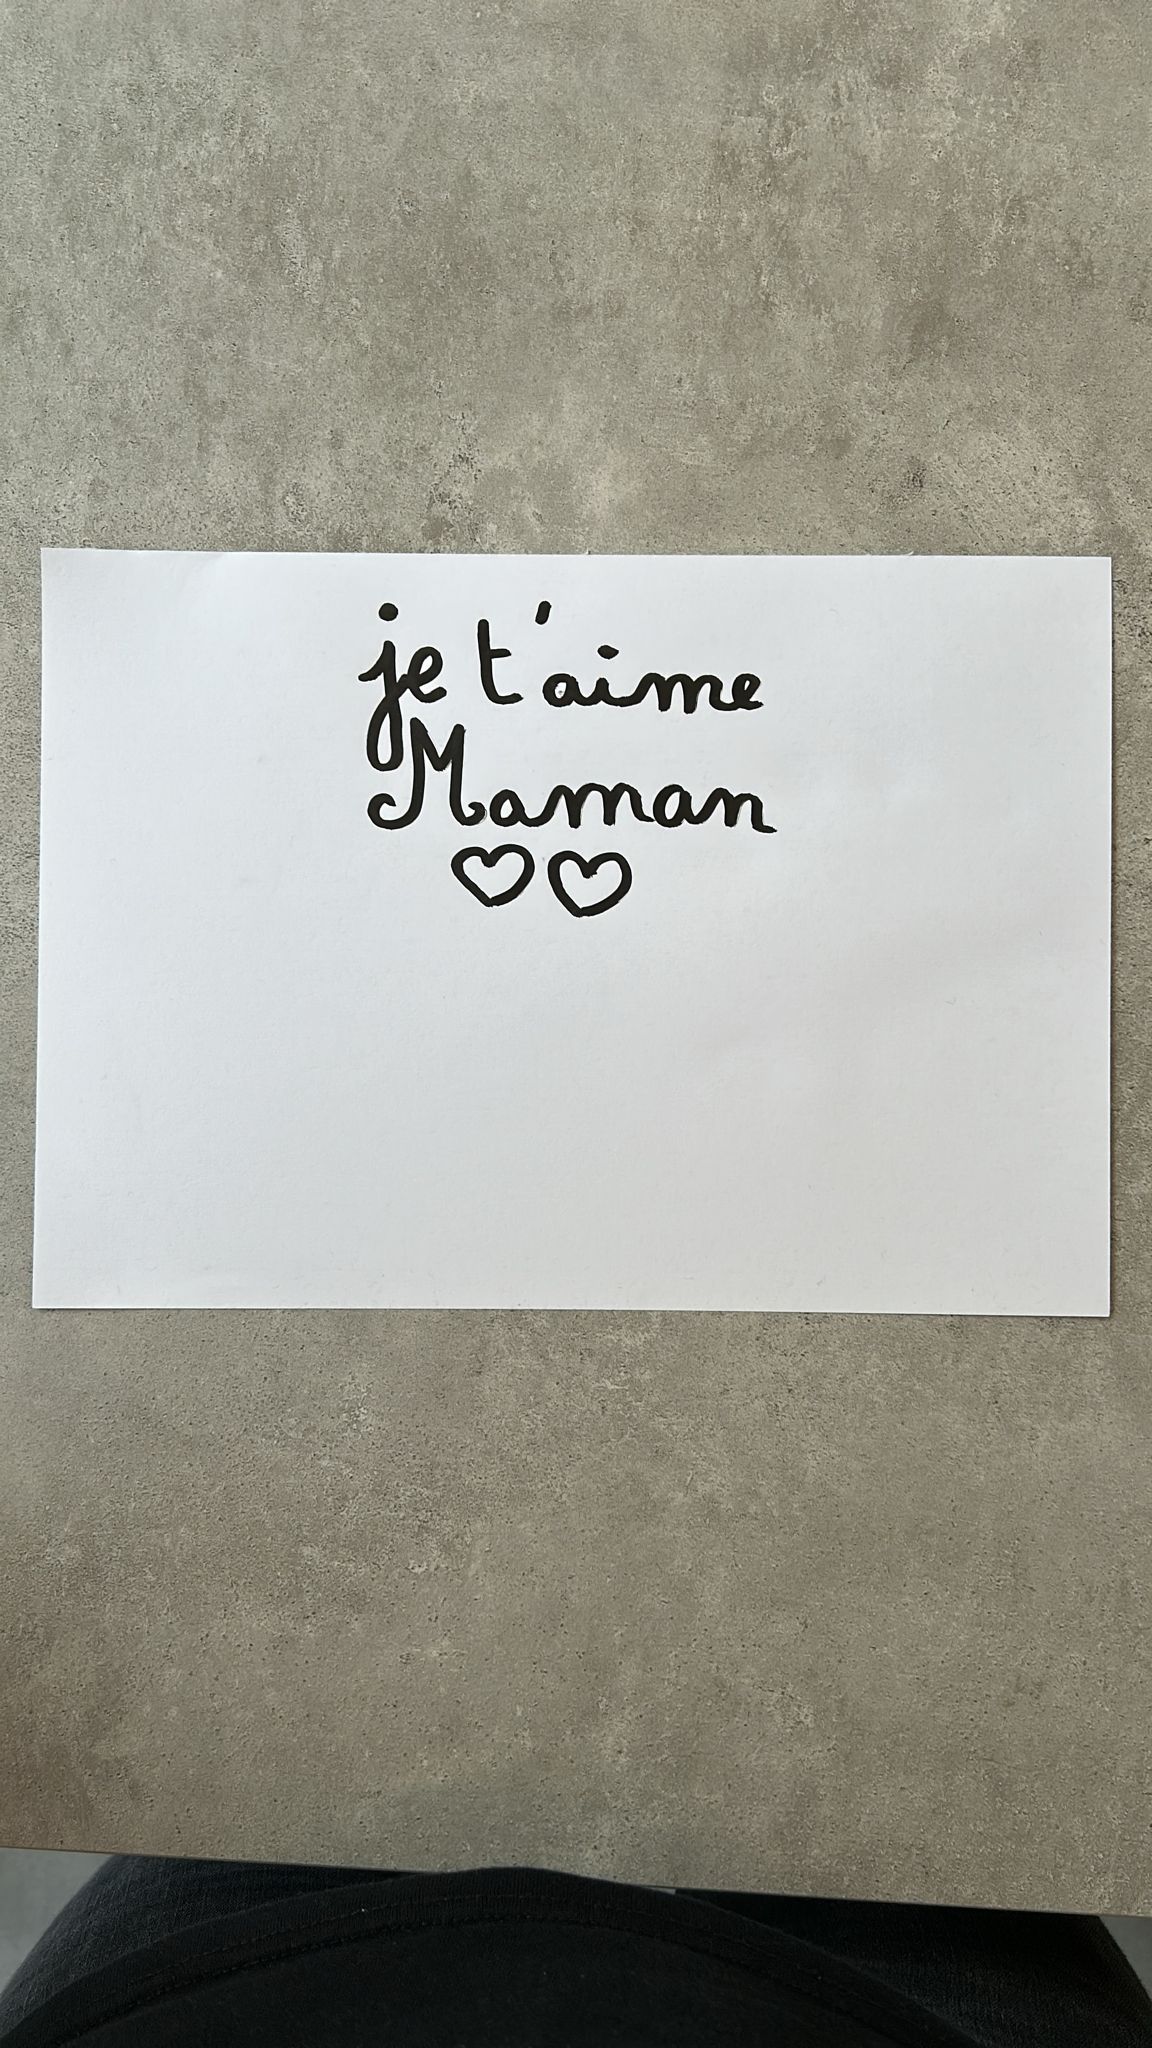 je t'aime
Maman
♡♡